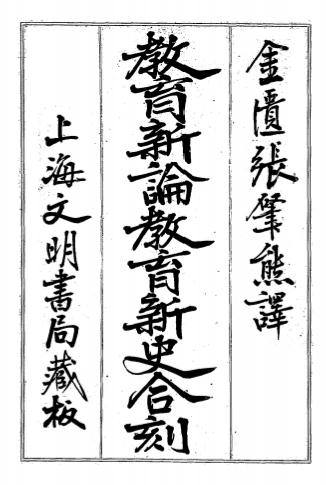 金匱張肇熊譯
教育新論教育新史合刻
上海文明書局藏板